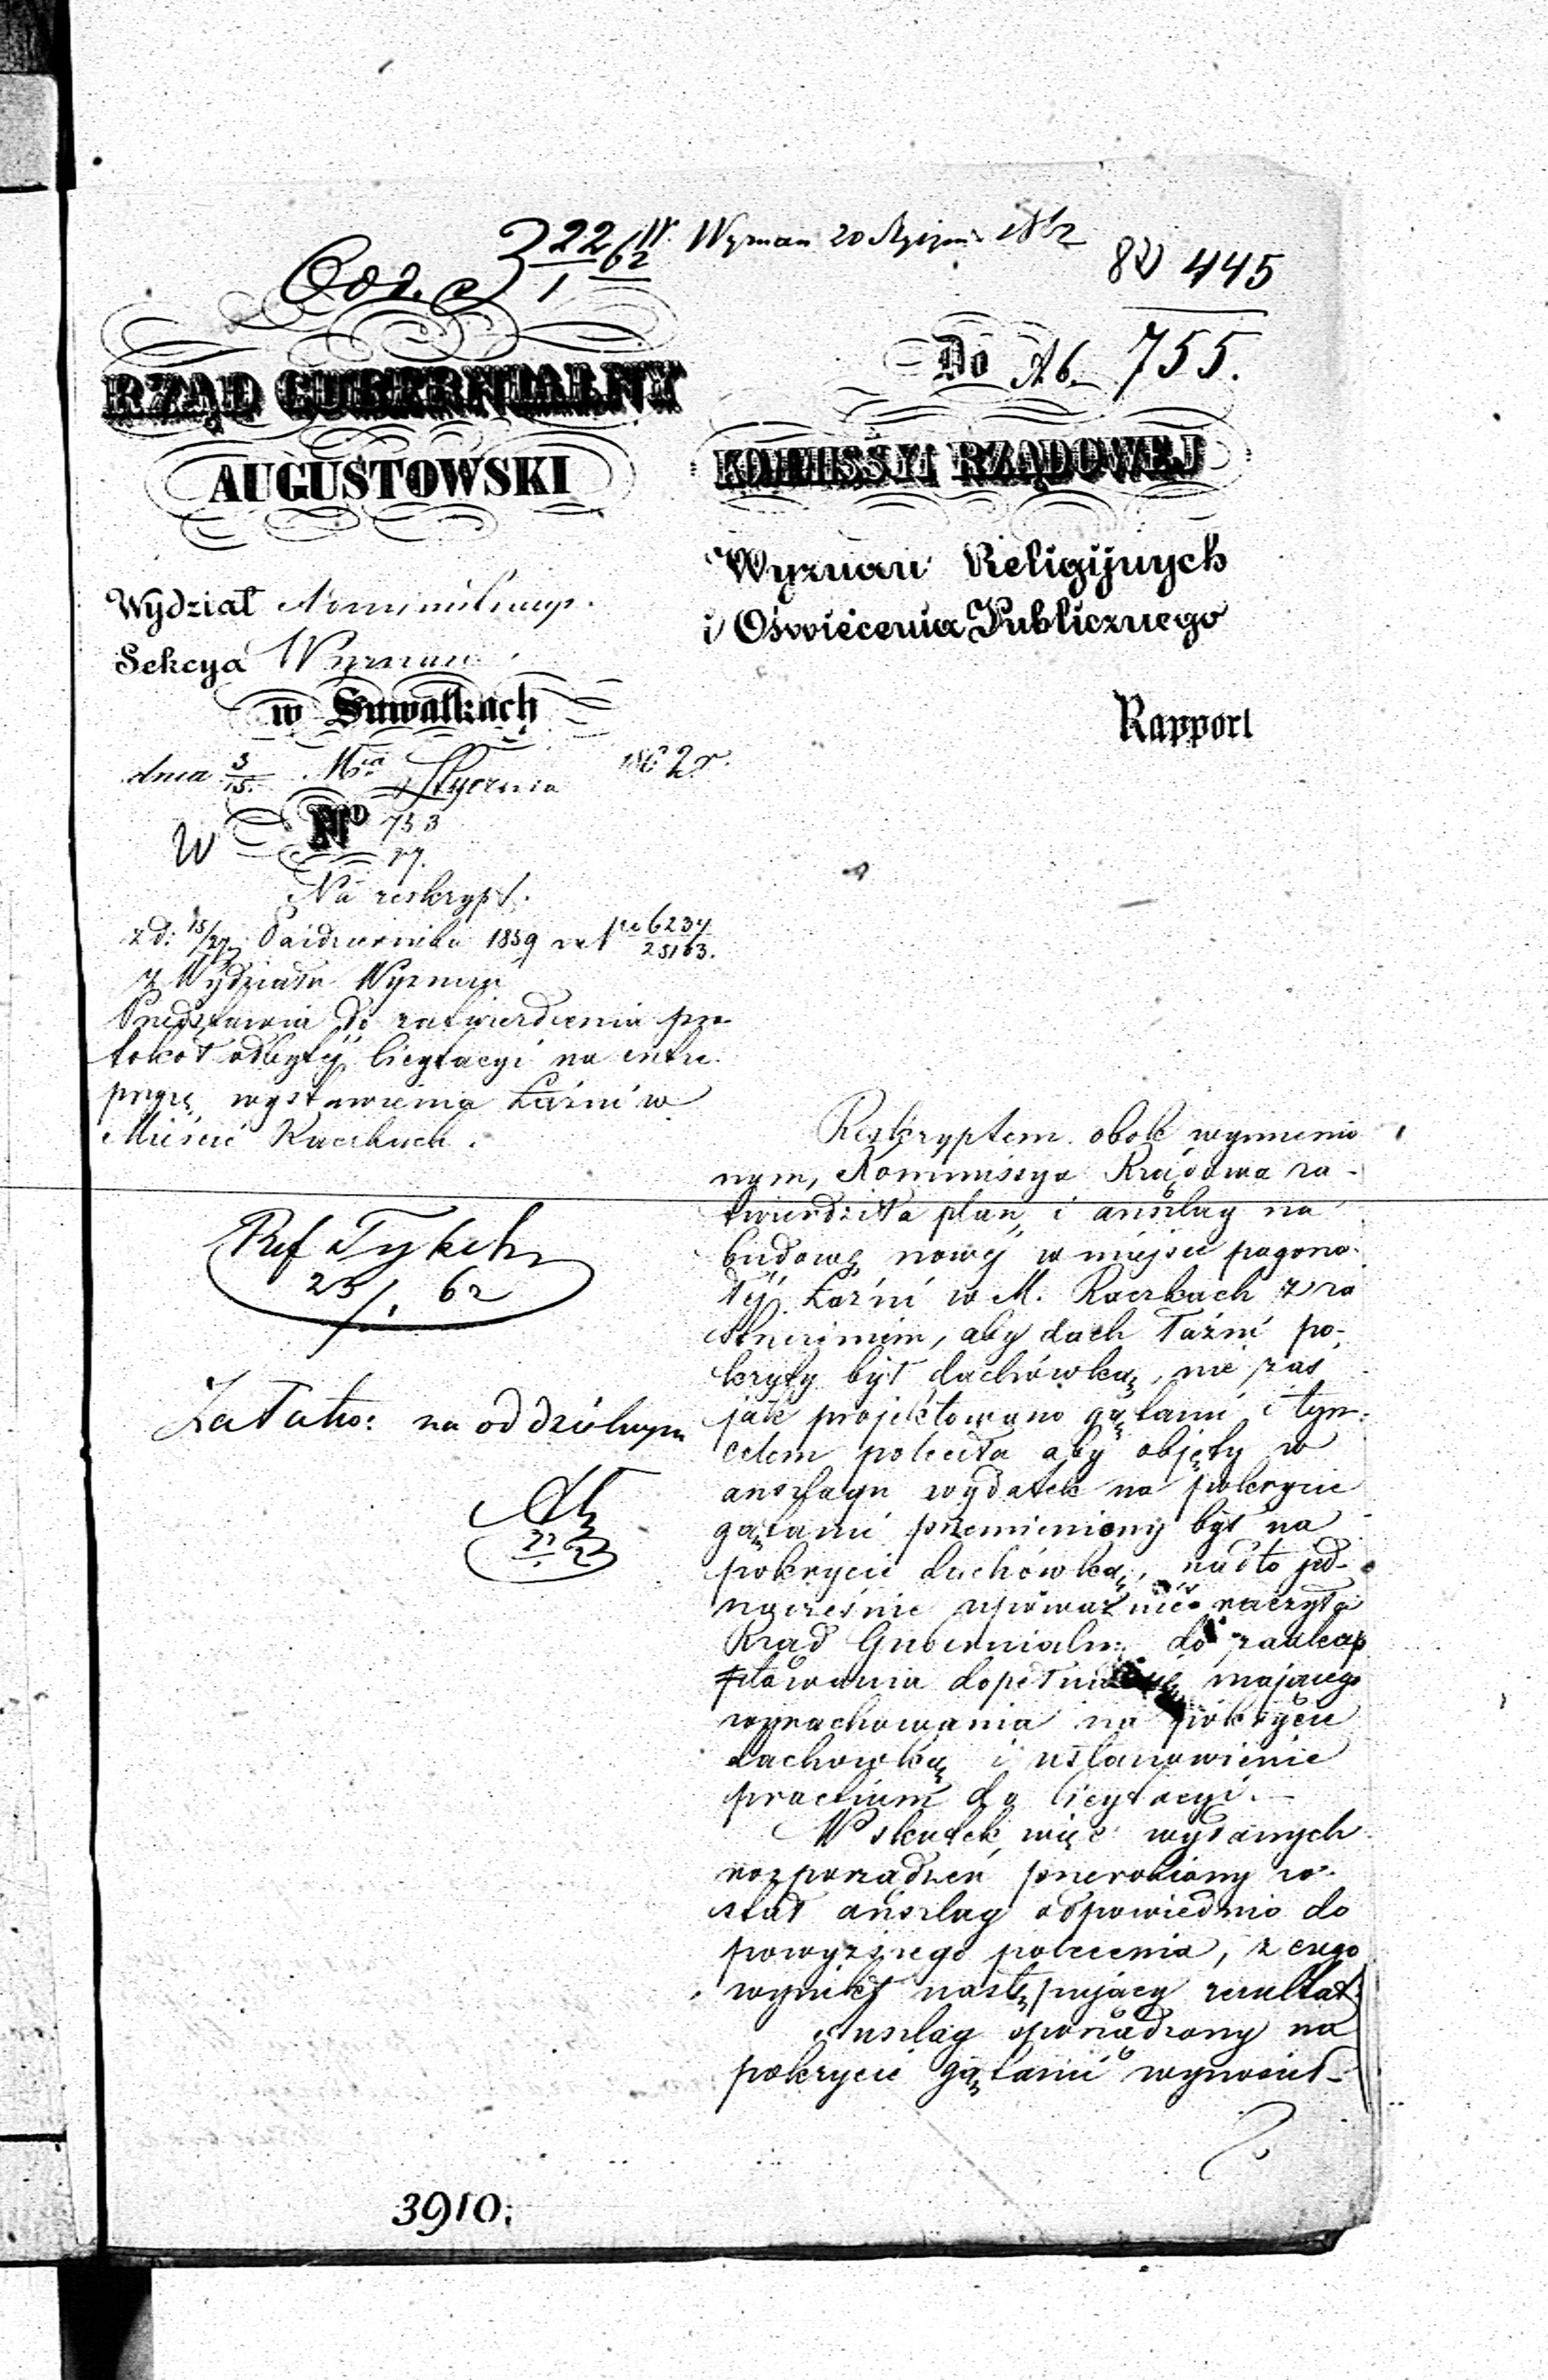 Odd. 22/1 62 W. Wyznań 20 Stycznia 1862
445
Do No 755.
RZĄD GUBERNIALNY
AUGUSTOWSKI
KOMMISSYI RZĄDOWEJ
Wyznań Religijnych
i Oświécenia Publicznego
Rapport
Wydział Administracyj.
Sekcya Wyznań
w Suwałkach
dnia 3/15. Mca Stycznia 1862 r.
W No 753
27.
Na reskrypt.
z d: 15/27 Październik 1859 roku No 6234/25163.
z Wydziału Wyznań
Przedstawia do zatwierdzenia pro-
tokół odbytéj licytacyi na entre-
pryzę wystawienia Łaźni w
Mieście Raczkach.
Ref Tykel
23/1. 62
Załatw: na oddzielnym
22/1 62
Reskryptem obok wymienio
nym, Kommissya Rządowa za-
twierdziła plan i anszlag na
budowę nowéj w miejsce pogorza-
łéj Łaźni w M. Raczkach z za
strzeżeniem, aby dach Łaźni po-
kryty był dachówką, nie zaś
jak projektowano gątami i tym
celem poleciła aby objęty w
anszlagu wydatek na pokrycie
gątami przemieniony był na
pokrycie dachówką, nadto jed-
nocześnie upoważnić raczyła
Rząd Gubernialny do
dopełnić się mającego
wyrachowania na pokrycie
dachówką i ustanowienie
praetium do licytacyi.
W skutek więc wydanych
rozporządzeń przerobiony zo-
stał anszlag odpowiednio do
powyższego polecenia, z czego
wynikł następujący rezultat
Anszlag sporządzony na
pokrycie gątami wynosił
3910.